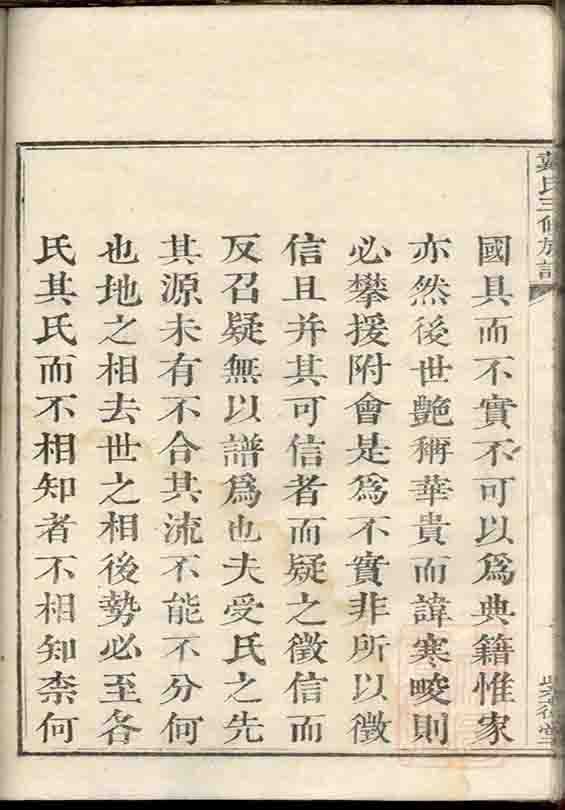 國具而不實不可以爲典籍惟家
亦然後世艷稱華貴而諱寒畯則
必攀援附會是爲不實非所以徵
信且并其可信者而疑之徵信而
反召疑無以譜爲也夫受氏之先
其源未有不合其流不能不分何
也地之相去世之相後勢必至各
氏其氏而不相知者不相知柰何